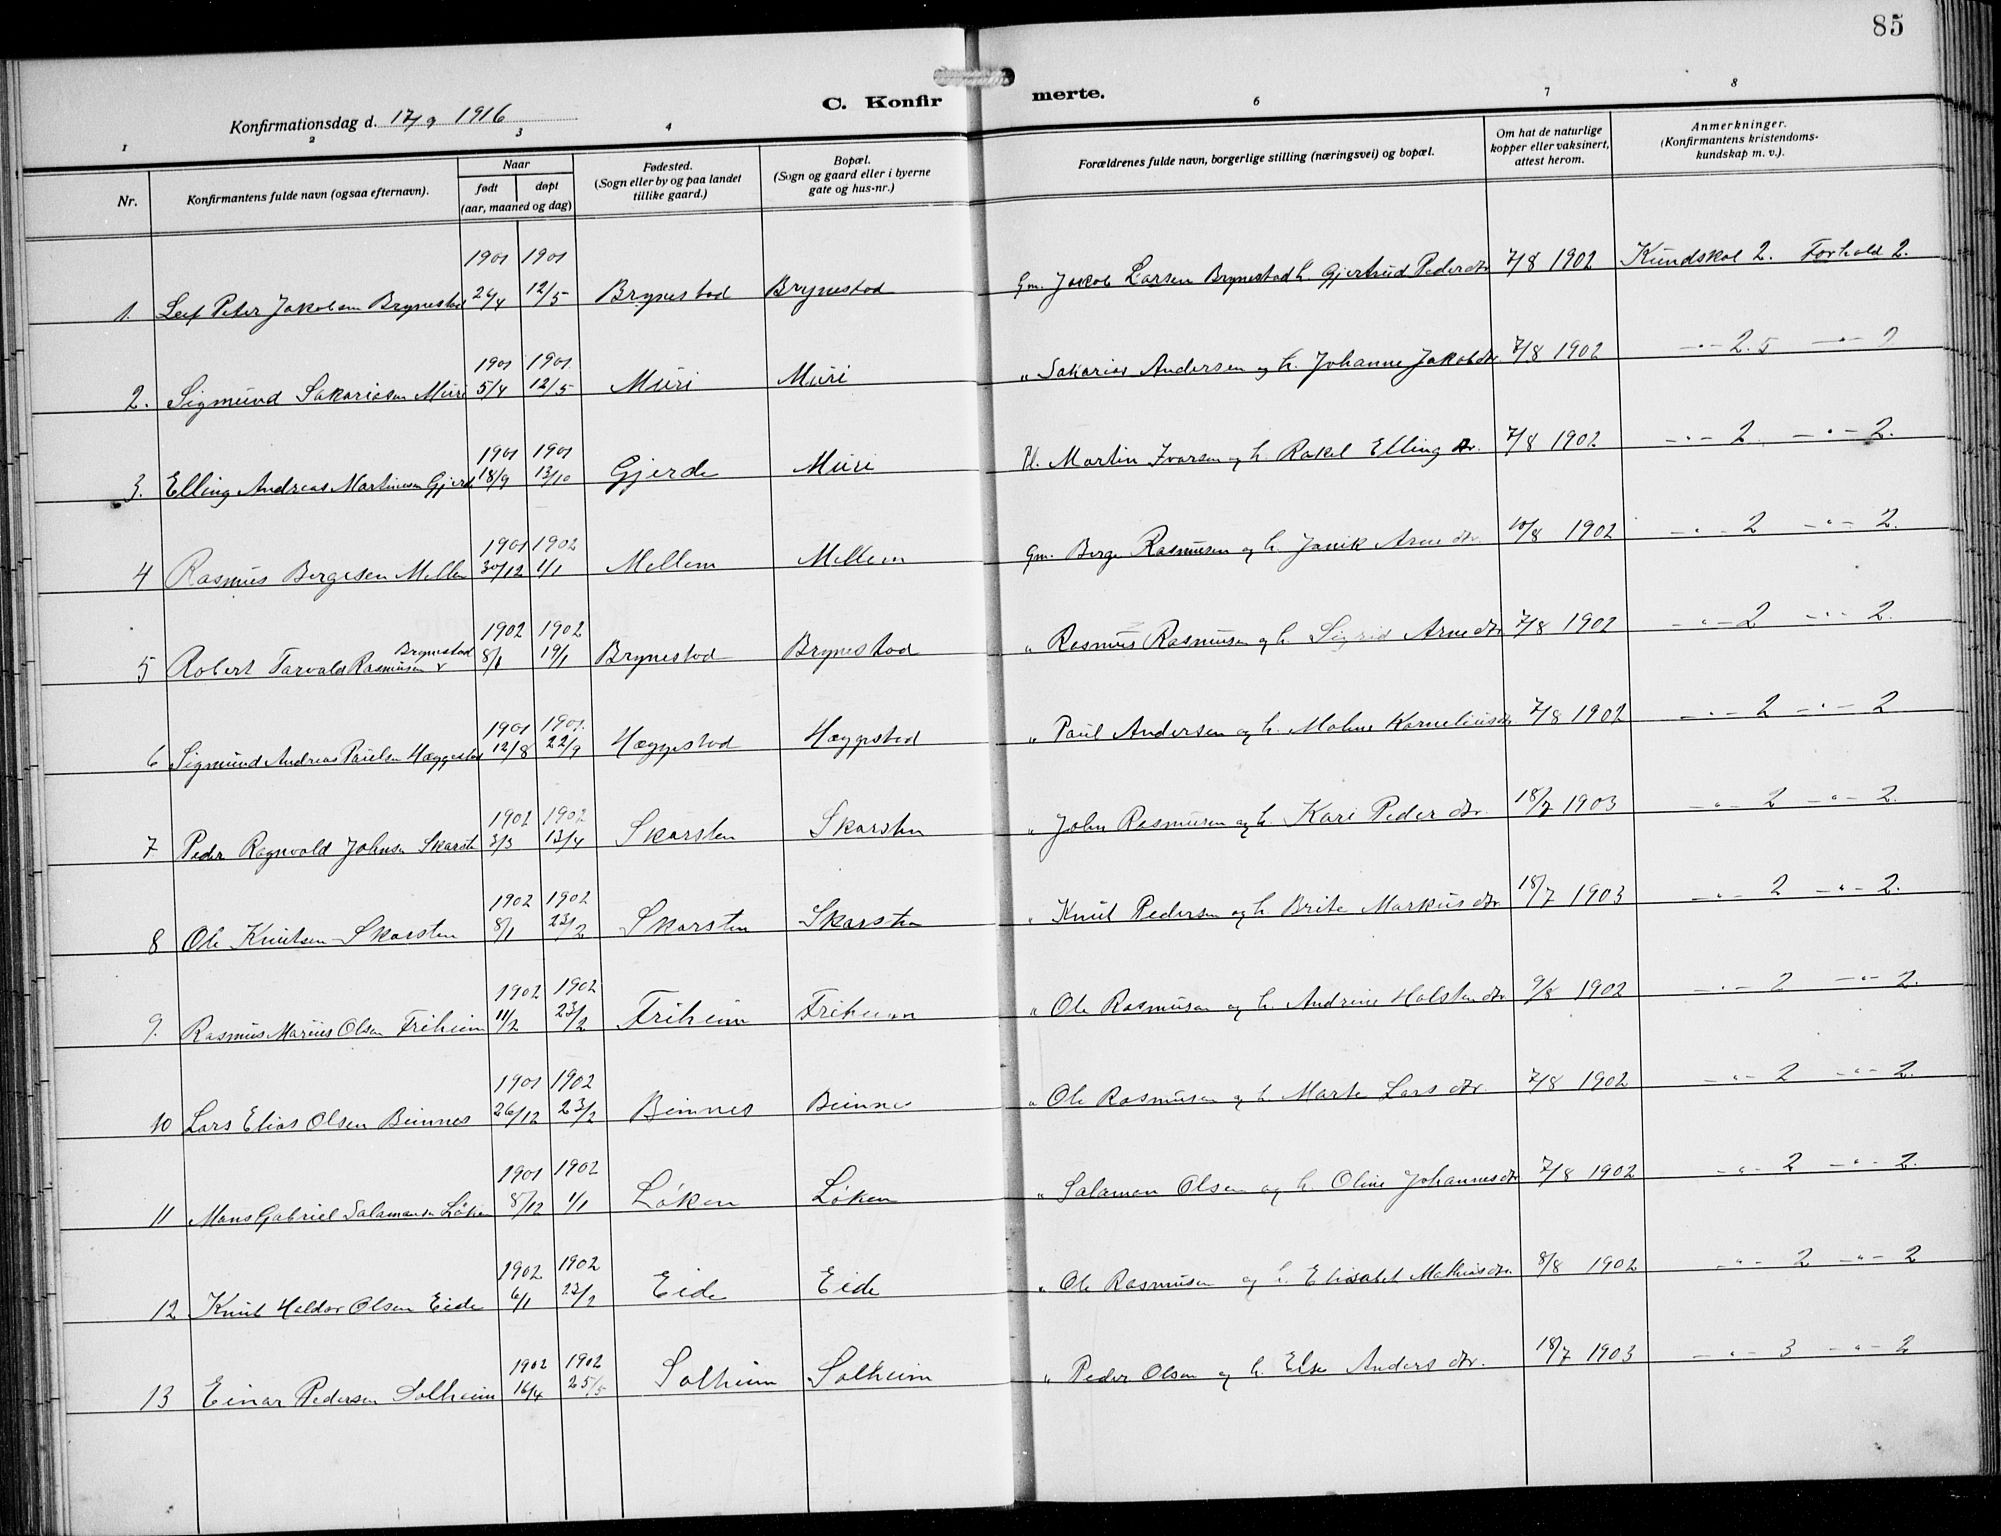 85
C. Konfirmerte.
Konfirmationsdag d. 17/9 1916
1 2 3 4 6 7 8
Nr.
Konfirmantens fulde navn (ogsaa efternavn).
Naar
født døpt
(aar, maaned og dag)
Fødested.
(Sogn eller by og paa landet
tillike gaard.)
Bopæl.
(Sogn og gaard eller i byerne
gate og hus-nr.)
Forældrenes fulde navn, borgerlige stilling (næringsvei) og bopæl.
Om hat de naturlige
kopper eller vaksinert,
attest herom.
Anmerkninger.
(Konfirmantens kristendoms-
kundskap m. v.).
1901 1901
1. Leif Peter Jakobsen Brynestad 26/4 12/5 Brynestad Brynestad Gm. Jakob Larsen Brynestad h. Gjertrud Pedersdtr 7/8 1902 Kundskab 2. Forhold 2.
1901 1901
2. Sigmund Sakariasen Muri 5/4 12/5 Muri Muri " Sakarias Andersen og h. Johanne Jakobdtr 7/8 1902 -"- 2.5 -"- 2
1901 1901
3. Elling Andreas Martinusen Gjerde 18/9 13/10 Gjerde Muri Pl. Martin Ivarsen og h. Rakel Elling dtr. 7/8 1902 -"- 2. -"- 2.
1901 1902
4 Rasmus Bergesen Mellem 30/12 1/1 Mellem Mellem Gm. Berge Rasmusen og h. Janik Arne dtr. 10/8 1902 -"- 2 -"- 2.
1902 1902
5 Robert Tarvald Rasmusen Brynestad 8/1 19/1 Brynestad Brynestad " Rasmus Rasmusen og h. Sigrid Arne dtr 7/8 1902 -"- 2 -"- 2.
1901 1901
6 Sigmund Andreas Paulsen Hæggestad 12/8 22/9 Hæggestad Hæggestad " Paul Andersen og h. Malene Korneliusdtr 7/8 1902 -"- 2 -"- 2
1902 1902
7 Peder Ragnvald Johnsen Skarsten 3/3 13/4 Skarsten Skarsten " John Rasmusen og h. Kari Peder dtr. 18/7 1903 -"- 2 -"- 2.
1902 1902
8 Ole Knutsen Skarsten 8/1 23/2 Skarsten Skarsten " Knut Pedersen og h. Brite Markus dtr. 18/7 1903 -"- 2 -"- 2.
1902 1902
9. Rasmus Marius Olsen Friheim 11/2 23/2 Friheim Friheim " Ole Rasmusen og h. Andrine Halsten dtr 9/8 1902 -"- 2 -"- 2.
1901 1902
10 Lars Elias Olsen Beinnes 26/12 23/2 Beinnes Beinnes " Ole Rasmusen og h. Marte Lars dtr. 7/8 1902 -"- 2 -"- 2.
1901 1902
11 Mons Gabriel Salamonsen Løken 8/12 1/1 Løken Løken " Salamon Olsen og h. Oline Johannesdtr 7/8 1902 -"- 2 -"- 2.
1902 1902
12 Knut Haldor Olsen Eide 6/1 23/2 Eide Eide " Ole Rasmusen og h. Elisabet Mathiasdtr. 8/8 1902 -"- 2 -"- 2
1902 1902
13 Einar Pedersen Solheim 16/4 25/5 Solheim Solheim " Peder Olsen og h. Else Anders dtr. 18/7 1903 -"- 3 -"- 2